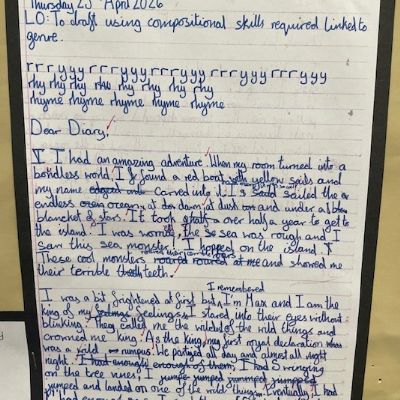 Thursday 23 April 2026
LO: To draft using compositional skills required linked to
genre.
rrryyy rrryyy rrryyy rrryyy rrryyy
rhy rhy rhy rhy rhy rhy rhy rhy
rhyme rhyme rhyme rhyme rhyme
Dear Diary,
I had an amazing adventure. When my room turned into a
boundless world, I found a red boat with yellow sails and
my name carved into it. I sailed the
endless oceans at dawn at dusk and under a
blancket of stars. It took over half a year to get
to the island. I was the sea was rough and I
saw this sea monster. I hopped on the island.
These cool monsters roared at me and showed me
their terrible teeth.
I remembered
I was a bit frightened at first but I'm Max and I am the
king of my feelings. I stared into their eyes without
blinking. They called me the wildest of the wild things and
crowned me king. As the king, my first royal declaration
was a wild rumpus. We partyed all day and almost all night
night. I had enough of them, I had swinging
on the tree vines, I jumpe jumped
jumped and landed on one of the wild things. Eventually, I had